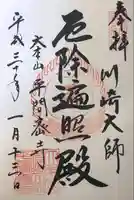 奉拝
川崎大師
厄除遍照殿
大本山平間寺
平成三十年一月十三日